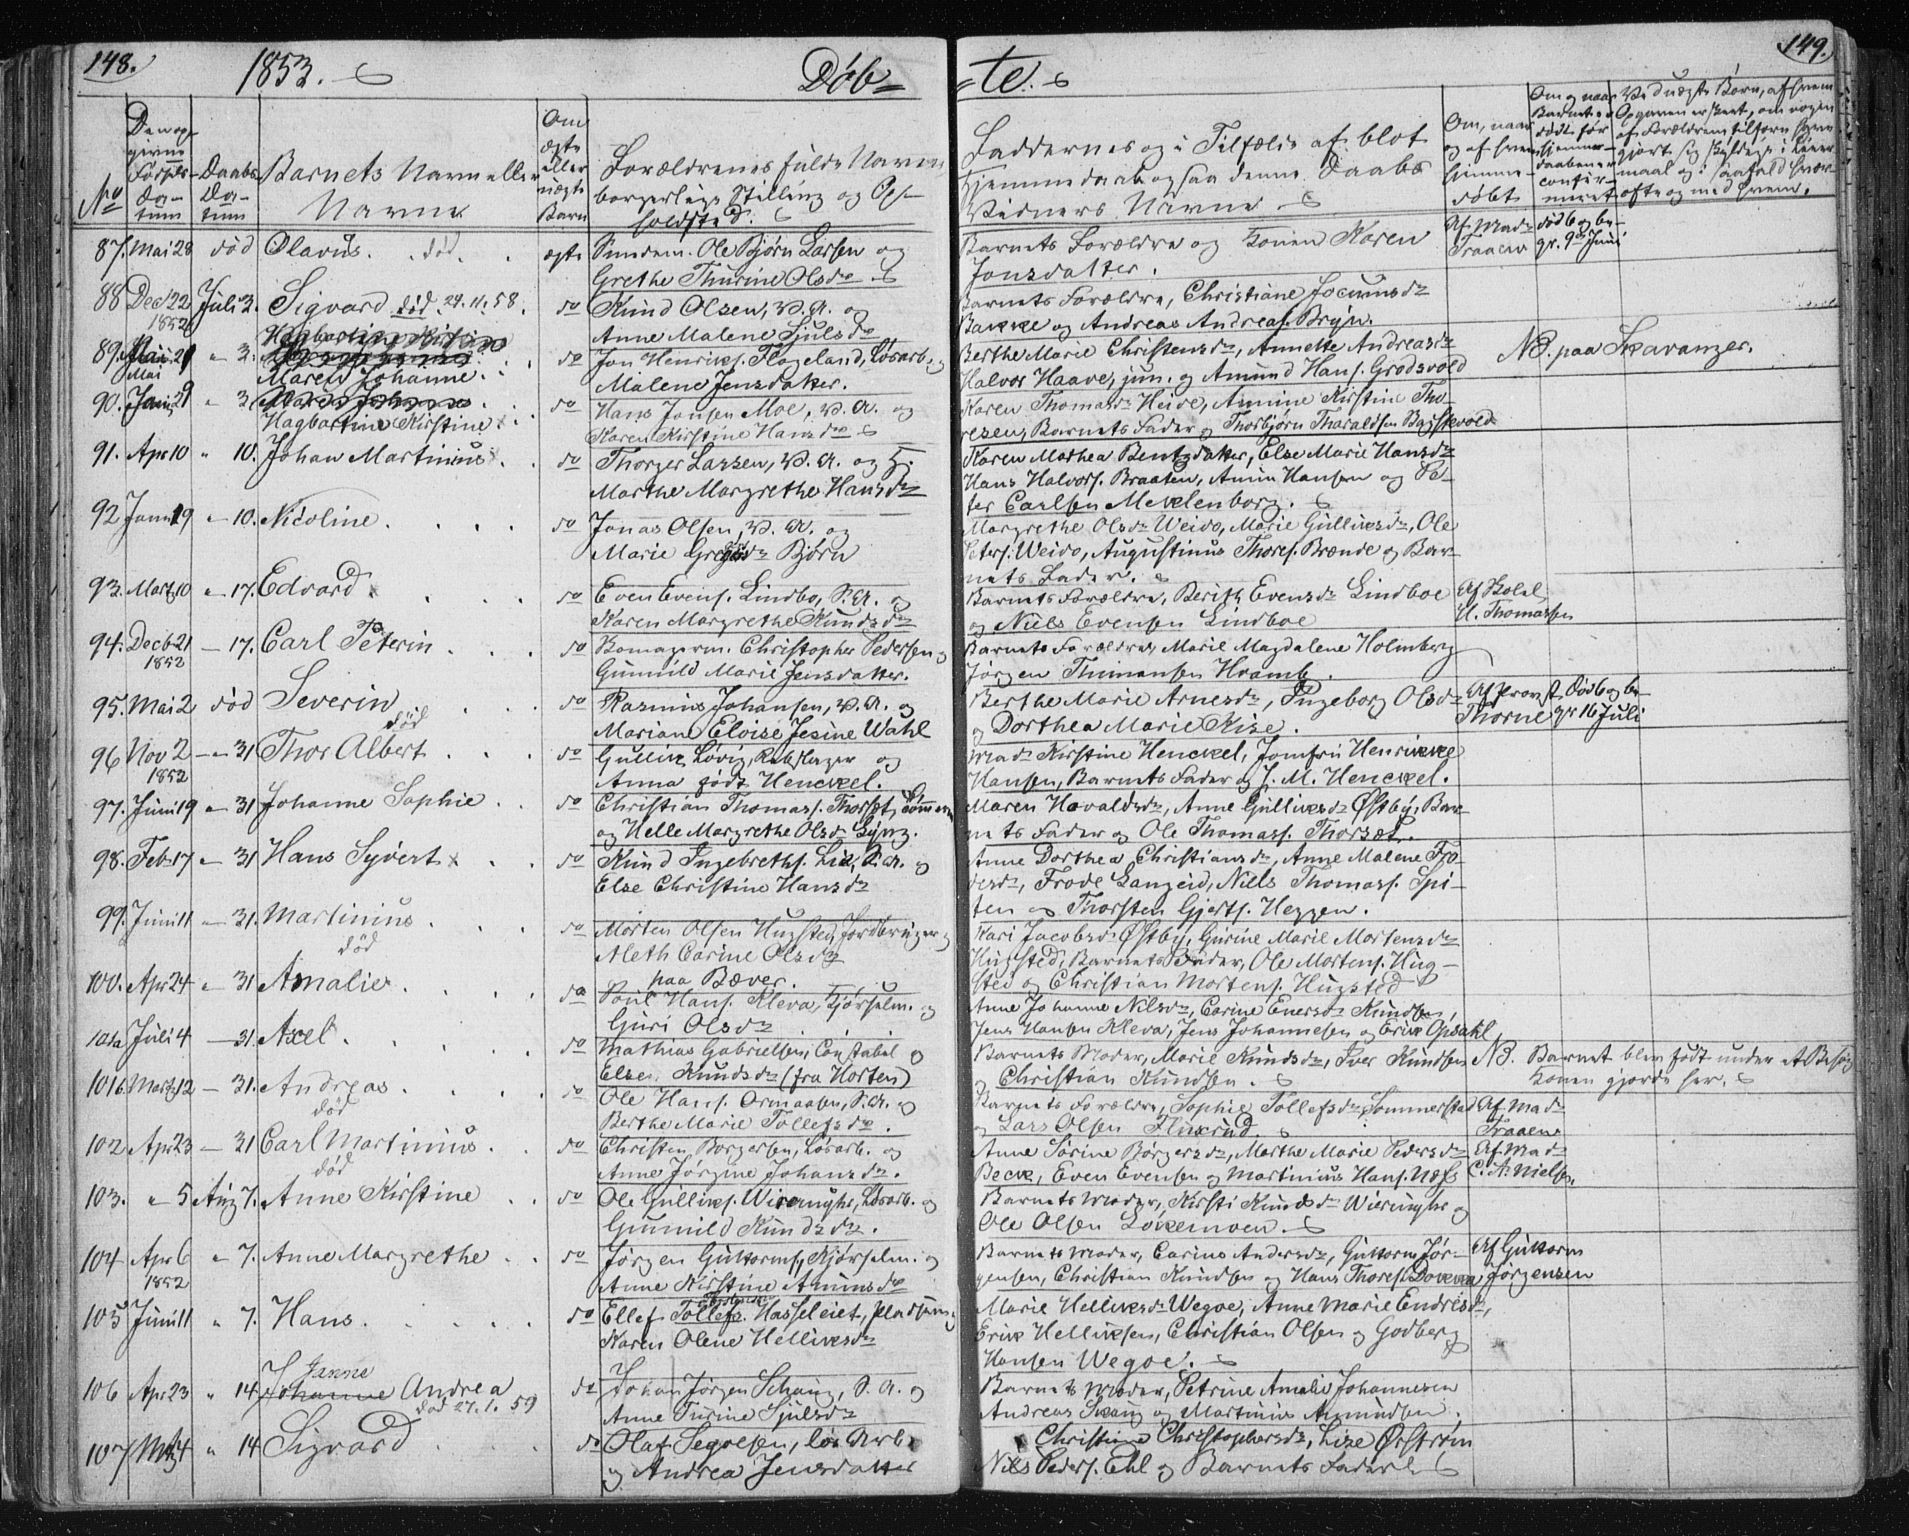 148. 1853. Døb-
-te. 149.
No
Den op-
givne
Fødsels-
da-
tum
Daabs
Da-
tum
Barnets Navn eller
Navne
Om
ægte
eller
uægte
Barn
Forældrenes fulde Navne
borgerlige Stilling og Op-
holdsted.
Faddernes og i Tilfælde af blot
Hjemmedaab ogsaa denne Daabs
Vidners Navne
Om, naar
og af hvem
hjemme-
døbt
Om og naar
Barnet er
død før
hjemme-
daaben er
confir-
meret
Ved uægte Børn, af hvem
Opgaven er skeet, om nogen
af Forældrene tilforn have
gjort sig skyldige i Leier-
maal og i saafald hvor
ofte og med hvem.
87. Mai 28 død Olavus. død. ægte Ole Bjørn Larsen og
Grethe Thurine Olsdr
Barnets Forældre og Konen Karen
Jonsdatter.
Af Mad.
Traaen
død og be-
gr. 9de Juni
88 Decb 22 Juli 3. Sigvard død. 24.11.58. do Knud Olsen, og
1852 Anne Malene Sjulsdr
Barnets Forældre, Christiane
Bakke og Andreas Andreas. Bryn.
89. Mai 21 " 3. Maren Johanne. do Jon Henriks. Flageland, Løsarb. og
Malene Jensdatter.
Berthe Marie Christensdr, Annette Andreasdr
Halvor Haave, jun. og Amund Hans. Grosvold
NB. paa Skavanger.
90. 29 " 3. Hagbartine Kirstine do Hans Jansen Moe, og
Karen Kirstine Hansdr
Karen Thomasdr Heide, Amine Kirstine Tho-
resen, Barnets Fader og Thorbjørn Tharaldsen Bagstevold
91. Apr 10 " 10. Johan Martinius do Thorger Larsen, og H.
Marthe Margrethe Hansdr
Karen Mathea Bentsdatter, Else Marie Hansdr
Hans Halvors. Braaten, Amun Hansen og Pe-
ter Carlsen Meklenborg.
92 Janu 19 " 10. Nicoline. do Jonas Olsen, og
Marie Bjørn
Margrethe Olsdr Weido, Marie Gulliksdr, Ole
Peters. Weido, Augustinus Thores. Brænde og Bar-
nets Fader.
93. Mart 10 " 17. Edvard do Even Evens. Lindbo, S.A. og
Karen Margrethe Knudsdr
Barnets Forældre, Berith Evensdr Lindboe
og Niels Evensen Lindboe
Af Bolel
H. Thomassen
94. Decb 21 — 17. Carl Peterin do Bomagerm. Christopher Pedersen og
1852 Gunnild Marie Jensdatter.
Barnets Forældre, Marie Magdalene Holmberg
Jørgen Thimansen Hvamb.
95. Mai 2 død Severin do Rasmus Johansen, og
død Mariane Eloise Jesine Wahl
Berthe Marie Arnesdr, Ingeborg Olsdr
og Dorthea Marie Rise.
Af Provst
Thorne
død og be-
gr 16 Juli
96 Nov 2 — " 31 Thor Albert do Gullik Løvig, Rebslager og
1852 Anna født Henckel.
Mad. Kirstine Henckel, Jomfru Henrikke
Hansen, Barnets Fader og J. M. Henckel.
97. Juni 19 " 31 Johanne Sophie do Christian Thomass. Thorsæt, Tømmerm
og Helle Margrethe Olsdr Lyng.
Maren Havaldsdr, Anne Gulliksdr Østby, Bar-
nets Fader og Ole Thomass. Thorsæt.
98. Feb 17 " 31 Hans Syvert do Knud Ingebreths. Lie, S.A. og
Else Christine Hansdr
Anne Dorthea Christiansdr, Anne Malene Fro-
desdr, Frode Langeid, Niels Thomass. Spi-
ten og Thorsten Gjerts. Heggen.
99. Juni 11 " 31. Martinius do Morten Olsen Hugsted, Jordbruger og
død Aleth Carine Olsdr
paa Bæver.
Kari Jacobsdr Østby, Gurine Marie Mortensdr
Hugsted, Barnets Fader, Ole Mortens. Hug-
sted og Christian Mortens. Hugsted
100. Apr 24 " 31 Amalie do Poul Hans. Kleva, Kjørselm. og
Guri Olsdr
Anne Johanne Nilsdr, Carine Enersdr Knudsen,
Jens Hansen Kleva, Jens Johannesen og Erik Opsahl
101a Juli 4 — 31. Axel. do Mathias Gabrielsen, Constabel og
Else Knudsdr (fra Horten)
Barnets Moder, Marie Knudsdr, Iver Knudsen
og Christian Knudsen.
NB. Barnet blev født under et Besøg
Konen gjorde her.
101b. Mart 12 — 31. Andreas do Ole Hans. Ormaasen, S.A. og
død Berthe Marie Tollefsdr.
Barnets Forældre, Sophie Tollefsdr Sommerstad
og Lars Olsen Flukrud
Af Mad.
Traaen
102 Apr 23 — 31 Carl Martinius. do Christen Borgersen, Løsarb. og
død Anne Jørgine Johansdr.
Anne Sørine Børgersdr, Marthe Marie Pedersdr
Beck, Even Evensen og Martinius Hans. Næss
Af Mad.
C. A. Nielsen.
103. " 5 Aug 7. Anne Kirstine do Ole Gulliks. Wirenughr, Løsarb. og
Gunnild Knudsdr.
Barnets Moder, Kirsti Knudsdr Wierunghr og
Ole Olsen Løkemoen.
104 Apr 6 " 7. Anne Margrethe do Jørgen Guttorms. Kjørselm. og
1852 Anne Kirstine Amunsdr
Barnets Moder, Carine Andersdr, Guttorm Jør-
gensen, Christian Knudsen og Hans Thores. Doveren
Af Guttorm
Jørgensen
105 Juni 11 " 7. Hans. do Ellef Tollefs. Hasseleiet, Pladsm. og
Karen Olene Helliksdr
Marie Helliksdr Wegoe, Anne Marie Endresdr,
Erik Helliksen, Christian Olsen og Godberg
Hansen Wegoe.
106 Apr 23 " 14. Janne
Johanne Andrea do Johan Jørgen Schaug, S.A. og
død 27.1.59 Anne Turine Sjulsdr
Barnets Moder, Petrine Amalie Johannesen
Andreas Skaug og Martinius Asmundsen.
107 " 14 Sigvard do Olaf Segolsen, løs Arb.
og Andrea Jensdatter
Christine Christophersdr, Lise Ørstrøm
Niels Peders. Ehl og Barnets Fader